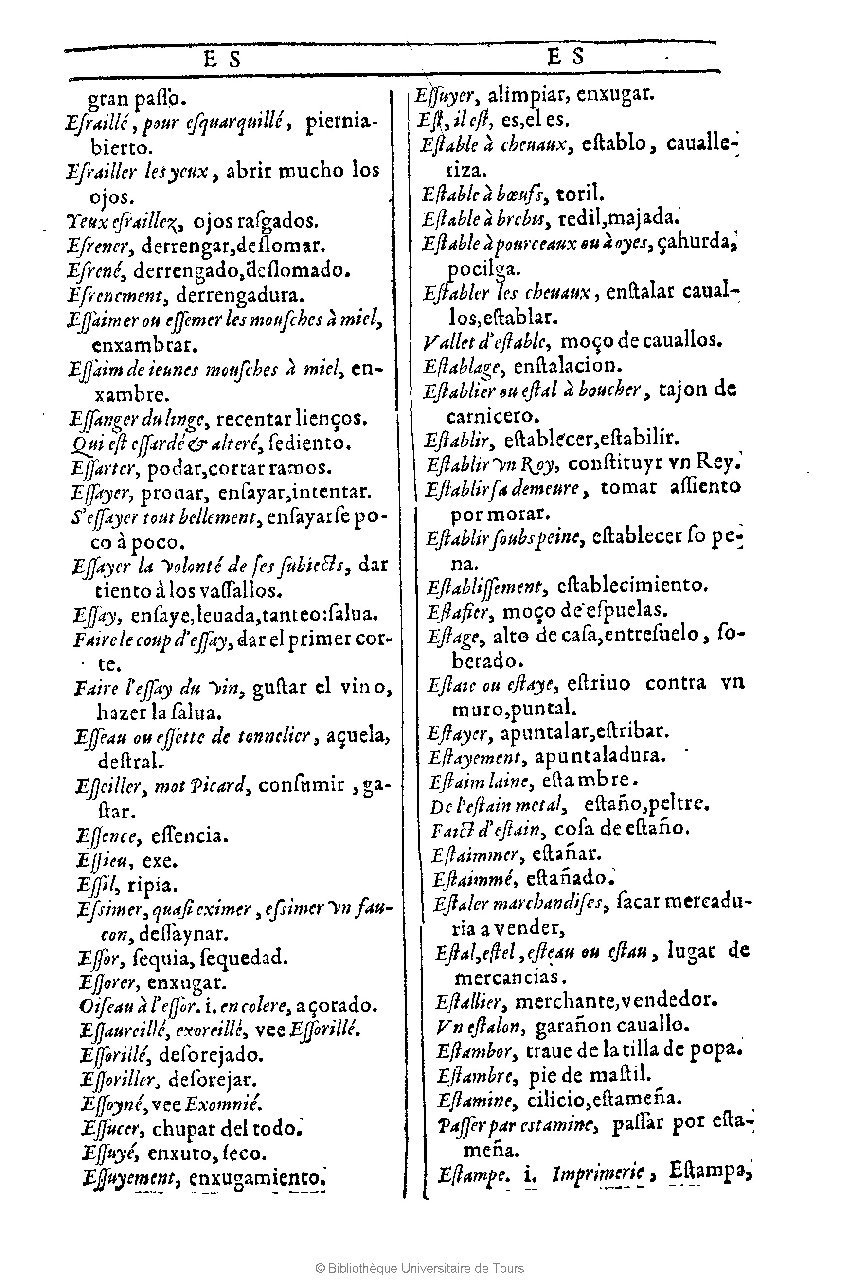 E S
E S
gran paſſo.
Eſraillé, pour eſquarquillé, piernia-
bierto.
Eſrailler les yeux, abrir mucho los
ojos.
Yeux eſraillez, ojos raſgados.
Eſrener, derrengar,deſlomar.
Eſrené, derrengado,deſlomado.
Eſrenement, derrengadura.
Eſſaimer ou eſſemer les mouſches à miel,
enxambrar.
Eſſaim de ieunes mouſches à miel, en-
xambre.
Eſſanger du linge, recentar lienços.
Qui eſt eſſardé & alteré, ſediento.
Eſſarter, podar,cortar ramos.
Eſſayer, prouar, enſayar,intentar.
S'eſſayer tout bellement, enſayarſe po-
co à poco.
Eſſayer la volonté de ſes ſubiects, dar
tiento à los vaſſallos.
Eſſay, enſaye,leuada,tanteo:ſalua.
Faire le coup d'eſſay, dar el primer cor-
te.
Faire l'eſſay du vin, guſtar el vino,
hazer la ſalua.
Eſſeau ou eſſette de tonnelier, açuela,
deſtral.
Eſſeiller, mot Picard, conſumir, ga-
ſtar.
Eſſence, eſſencia.
Eſſieu, exe.
Eſſil, ripia.
Eſsimer, quaſi eximer, eſsimer vn fau-
con, deſſaynar.
Eſſor, ſequia, ſequedad.
Eſſorer, enxugar.
Oiſeau à l'eſſor. i. en colere, açorado.
Eſſaureillé, exoreillé, vee Eſſorillé.
Eſſorillé, deſorejado.
Eſſoriller, deſorejar.
Eſſoyné, vee Exomnié.
Eſſucer, chupar del todo.
Eſſuyé, enxuto, ſeco.
Eſſuyement, enxugamiento.
Eſſuyer, alimpiar, enxugar.
Eſt, il eſt, es,el es.
Eſtable à cheuaux, eſtablo, caualle-
riza.
Eſtable à bœufs, toril.
Eſtable à brebis, redil,majada.
Eſtable à pourceaux ou à oyes, çahurda,
pocilga.
Eſtabler les cheuaux, enſtalar caual-
los,eſtablar.
Vallet d'eſtable, moço de cauallos.
Eſtablage, enſtalacion.
Eſtablier ou eſtal à boucher, tajon de
carnicero.
Eſtablir, eſtablecer,eſtabilir.
Eſtablir vn Roy, conſtituyr vn Rey.
Eſtablir ſa demeure, tomar aſſiento
por morar.
Eſtablir ſoubs peine, eſtablecer ſo pe-
na.
Eſtabliſſement, eſtablecimiento.
Eſtafier, moço de eſpuelas.
Eſtage, alto de caſa,entreſuelo, ſo-
berado.
Eſtaie ou eſtaye, eſtriuo contra vn
muro,puntal.
Eſtayer, apuntalar,eſtribar.
Eſtayement, apuntaladura.
Eſtaim laine, eſtambre.
De l'eſtain metal, eſtaño,peltre.
Faict d'eſtain, coſa de eſtaño.
Eſtaimmer, eſtañar.
Eſtaimmé, eſtañado.
Eſtaler marchandiſes, ſacar mercadu-
ria a vender,
Eſtal,eſtel, eſteau ou eſtau, lugar de
mercancias.
Eſtallier, merchante,vendedor.
Vn eſtalon, garañon cauallo.
Eſtambor, traue de la tilla de popa.
Eſtambre, pie de maſtil.
Eſtamine, cilicio,eſtameña.
Paſſer par estamine, paſſar por eſta-
meña.
Eſtampe. i. Imprimerie, Eſtampa,
© Bibliothèque Universitaire de Tours